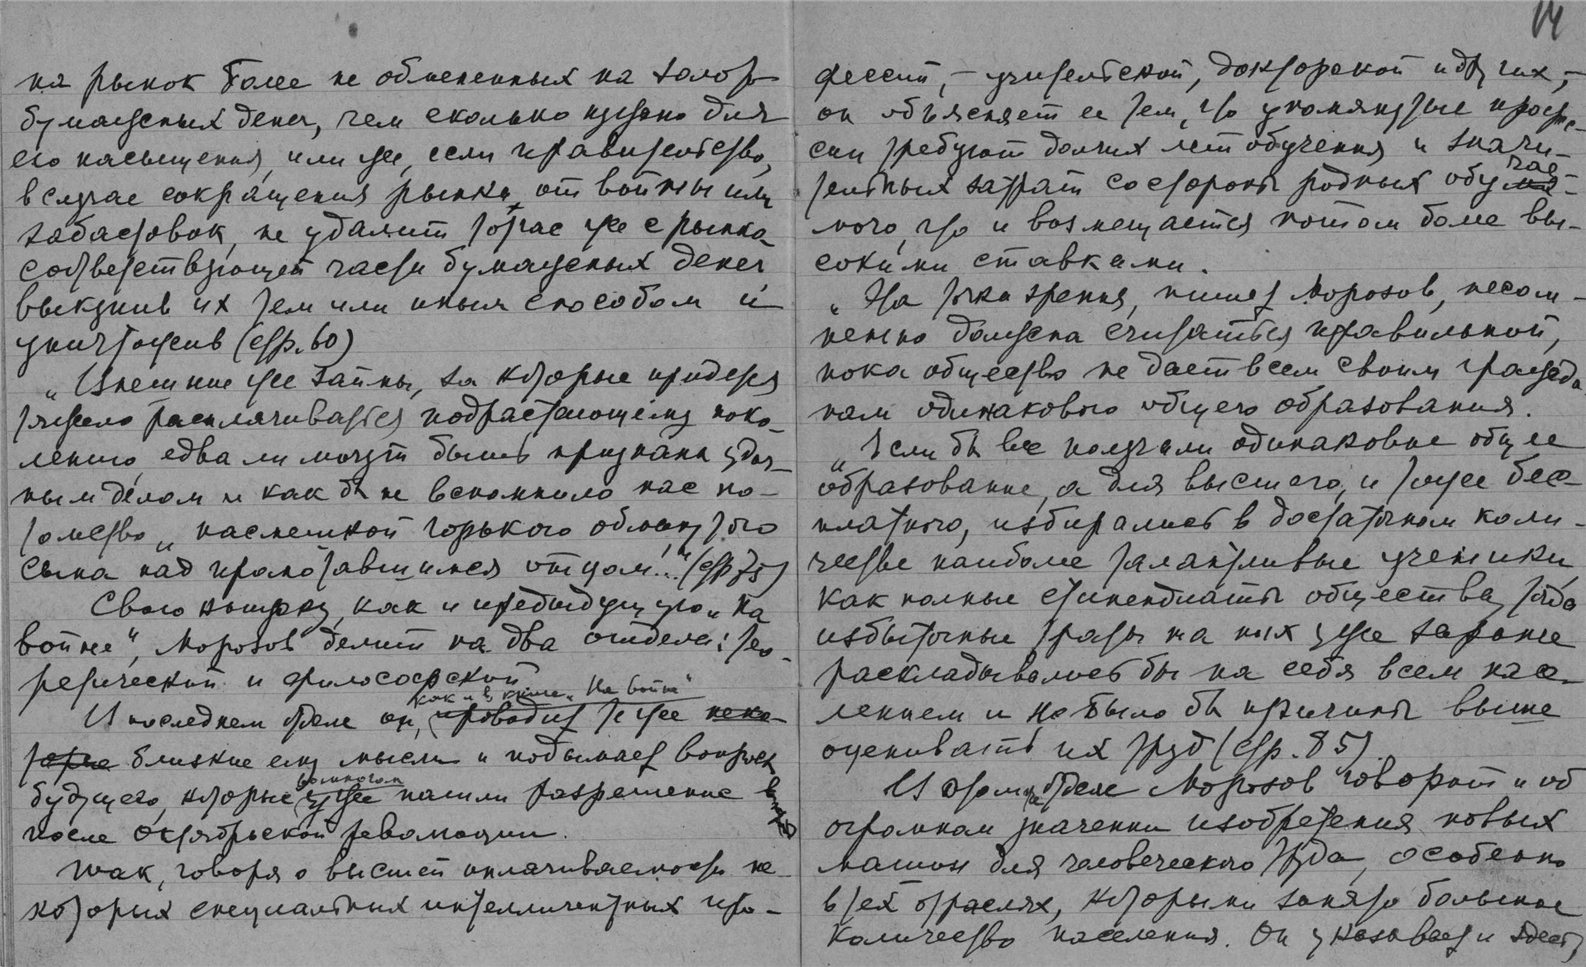 на рынок более не обмененных на золото
бумажных денег, чем сколько нужно для
его насыщения, или же, если правительство,
в случае сокращения рынка от войны или
забастовок, не удалит тотчас же с рынка
соответствующей части бумажных денег
выкупив их тем или иным способом и
уничтожив (стр. 60)
„Внешние же займы, за которые придется
тяжело расплачиваться подрастающему поко-
лению, едва ли могут быть признаны удач-
ным делом и как бы не вспомнило нас по-
томство „насмешкой горького обманутого
сына над промотавшимся отцом..." (стр 75)
Свою книжку, как и предыдущую „На
войне", Морозов делит на два отдела: тео-
ретический и философский
как и в книге „На войне"
В последнем отделе он, проводит те же неко-
торые близкие ему мысли и подымает вопросы
во многом
будущего, которые уже нашли разрешение
после Октябрьской революции.
Так, говоря о высшей оплачиваемости не-
которых специальных интеллигентных про-
14
фессий, – учительской, докторской и других, –
он объясняет ее тем, что упомянутые профес-
сии требуют долгих лет обучения и значи-
тельных затрат со стороны родных обучае-
мого, что и возмещается потом более вы-
сокими ставками.
„Эта точка зрения, пишет Морозов, несом-
ненно должна считаться правильной,
пока общество не дает всем своим гражда-
нам одинакового общего образования.
„Если бы все получали одинаковое общее
образование, а для высшего, и тоже бес-
платного, избирались в достаточном коли-
честве наиболее талантливые ученики,
как полные стипендиаты общества, тогда
избыточные траты на них уже заранее
раскладывались бы на себя всем насе-
лением и не было бы причины выше
оценивать их труд (стр. 85).
В этом же отделе Морозов говорит и об
огромном значении изобретения новых
машин для человеческого труда, особенно
в тех отраслях, которыми занято большое
количество населения. Он указывает и здесь,